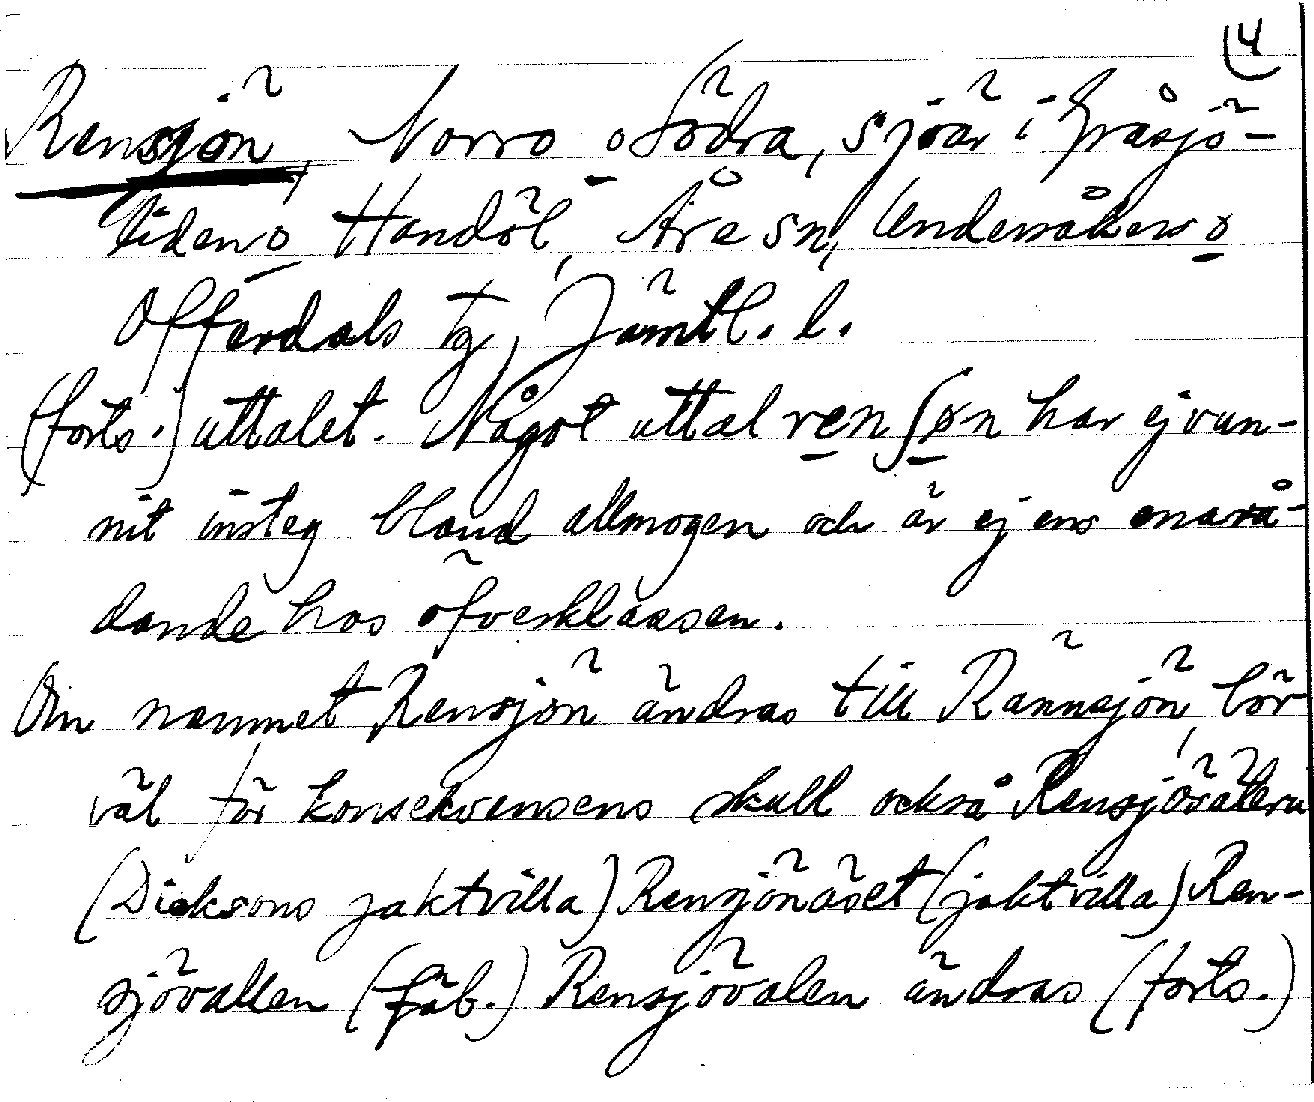 (4
Rensjön, Norro o Södra, sjöar i Gråsjö-
liden o Handöl, Åre sn, Undersåkers o
Offerdals tg, Jämtl. l.
(forts.) uttalet. Något uttal ren ʃøn har ej vun-
nit insteg bland allmogen och är ej ens enarå-
dande hos öfverklassen.
Om namnet Rensjön ändras till Rännsjön, bör
väl för konsekvensens skull också Rensjövålen
(Dicksons jaktvilla) Rensjönäset (jaktvilla) Ren-
sjövallen (fäb.) Rensjövalen ändras (forts.)